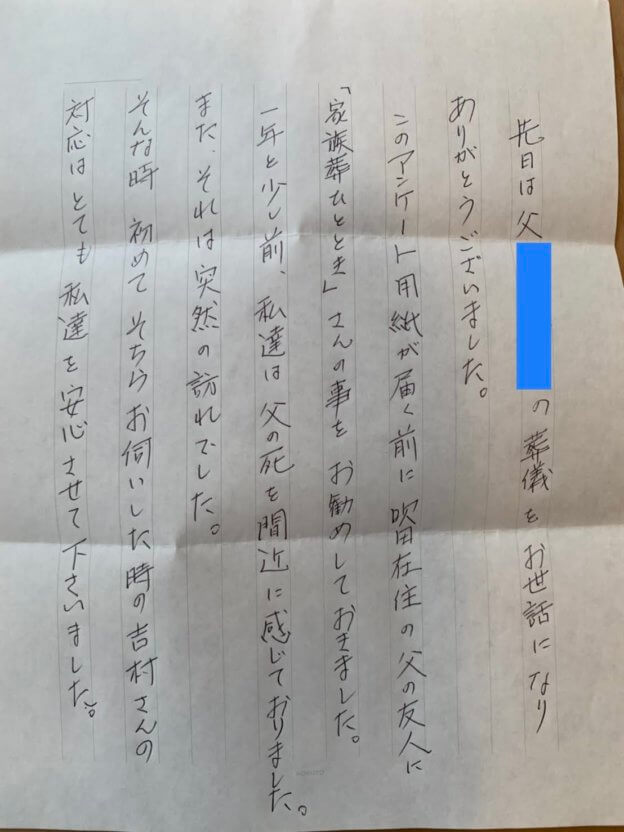 先日は父
の葬儀をお世話になり
ありがとうございました。
このアンケート用紙が届く前に吹田在住の父の友人に
「家族葬ひととき」さんの事をお勧めしておきました。
一年と少し前、私達は父の死を間近に感じておりました。
また、それは突然の訪れでした。
そんな時初めてそちらお伺いした時の吉村さんの
対応はとても私達を安心させて下さいました。
KOKUYO